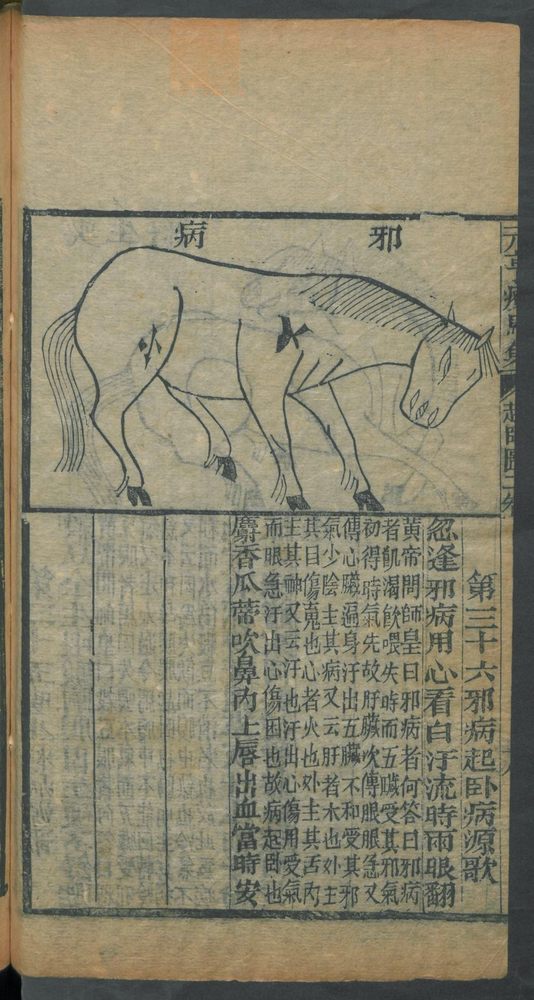 邪病
元亨療馬集 起卧圖二卷
第三十六邪病起卧病源歌
忽逢邪病用心看白汗流時兩眼翻
黃帝問師皇曰邪病者何答曰邪病
者飢渴飲喂失時而五臟受其邪氣
初得時氣先故肝臟次傳眼眼急又
傳心臟遍身汗出五臟不和受其邪
氣少陰主其病又云肝者木也外主
其目傷䰟也心者火也外主其舌内
主其神又云汗也汗出心傷用愛氣
而眼急汗出心傷困也故病起卧也
麝香瓜蒂吹鼻内上唇出血當時安